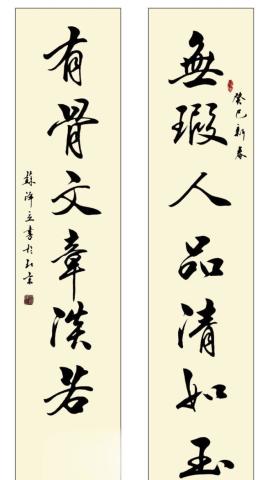 無瑕人品清如玉
癸巳新春
有骨文章淡若
蘇澤立書於北京